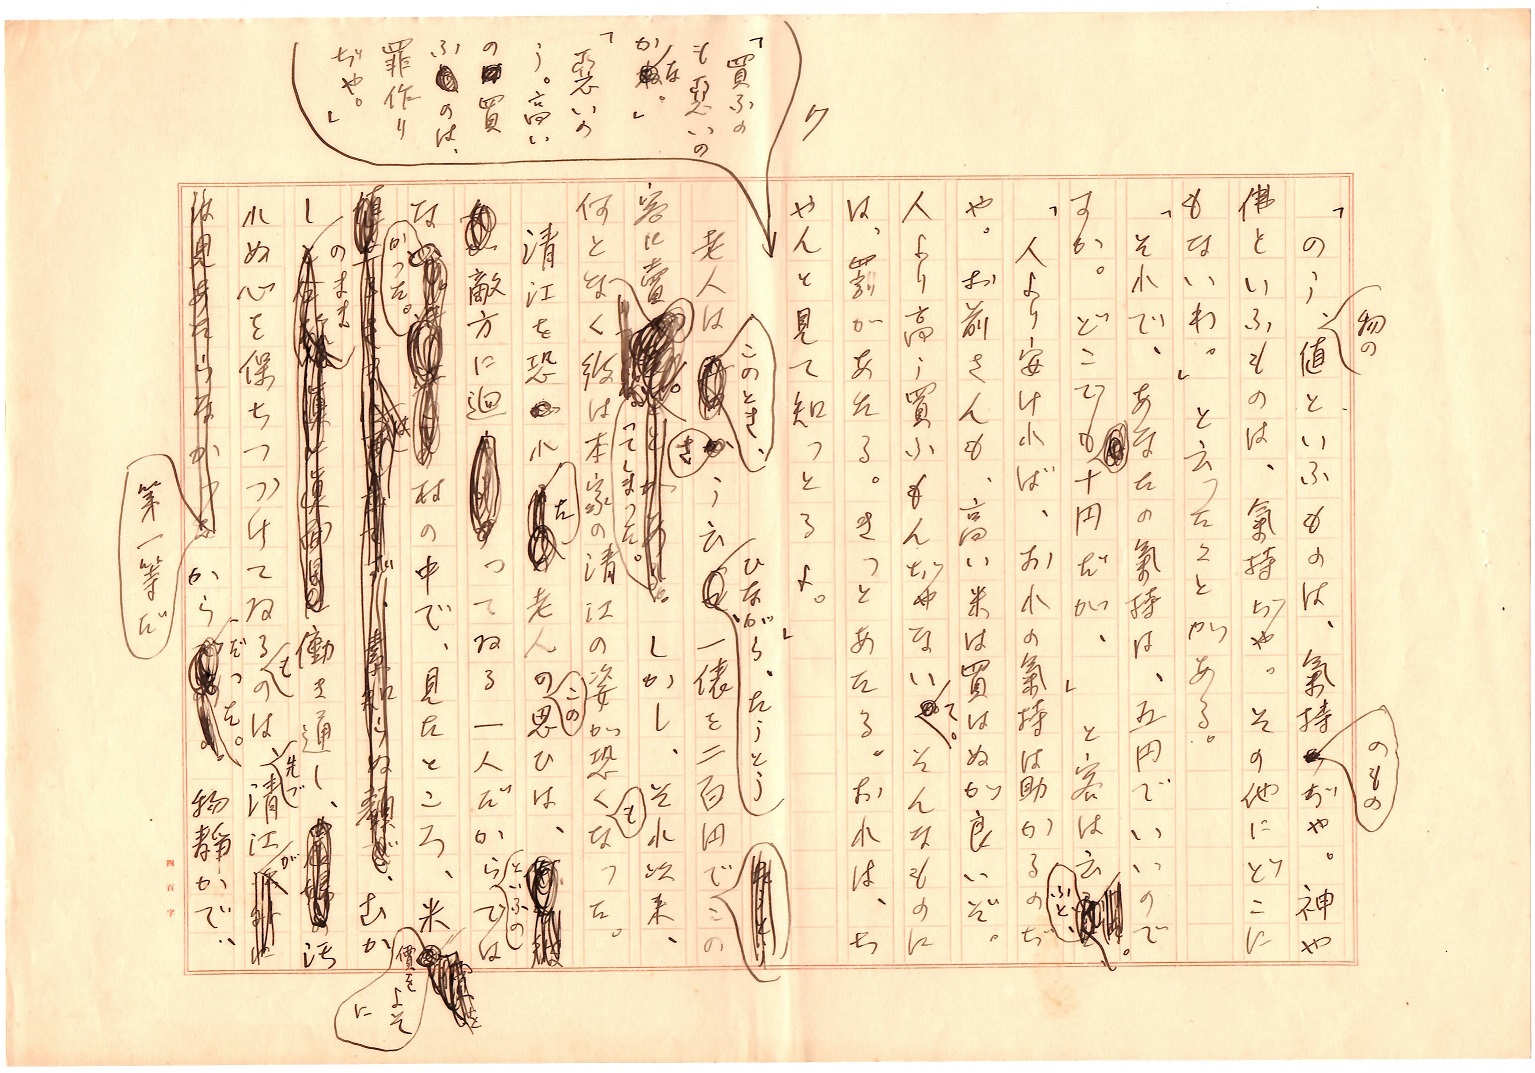 「のう、値といふものは、氣持のものぢや。神や
物の
佛といふものは、氣持ぢや。その他にどこに
もないわ。」と云つたことがある。
「それで、あなたの氣持は、五円でいいので
すか。どこでも十円だが、」と客は云ふと、
「人より安ければ、おれの氣持は助かるのぢ
や。お前さんも、高い米は買はぬが良いぞ。
人より高う買ふもんぢやないて。そんなものに
は、罰があたる。きつとあたる。おれは、ち
やんと見て知つとるよ。」
ワ
「買ふの
も惡いの
かな。」
「惡いの
う。高い
の買
ふのは、
罪作り
ぢや。」
老人はこのとき、さう云ひながら、たうとう一俵を二百円でこの
客に賣つてしまつた。しかし、それ以来、
何となく彼は本家の清江の姿が恐くもなつた。
清江を恐れた老人のこの思ひは、といふの
敵方に廻つてゐる一人だからでは
なかつた。村の中で、見たところ、米
價をよそに
のまま
し働き通し、汚
れぬ心を保ちつづけてゐるのも先で清江が
第一等だ
からだつた。物靜かで、
四百字